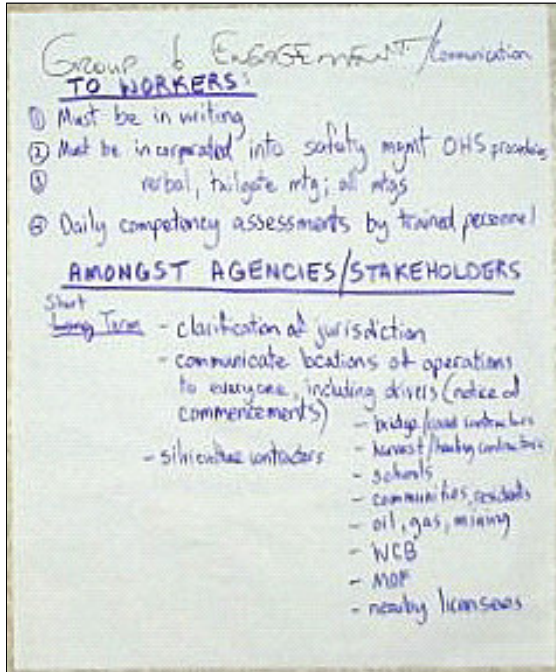 Group 6 ENGAGEMENT/Communication
TO WORKERS:
① Must be in writing
② Must be incorporated into safety mgmt OHS procedures
③ verbal, tailgate mtg; all mtgs
④ Daily competency assessments by trained personnel
AMONGST AGENCIES/STAKEHOLDERS
Short
Long Term - clarification of jurisdiction
- communicate locations of operations
to everyone, including drivers (notice of
commencements)
- bridge/road contractors
- silviculture contractors
- harvest/hauling contractors
- schools
- communities, residents
- oil, gas, mining
- WCB
- MOF
- nearby licensees